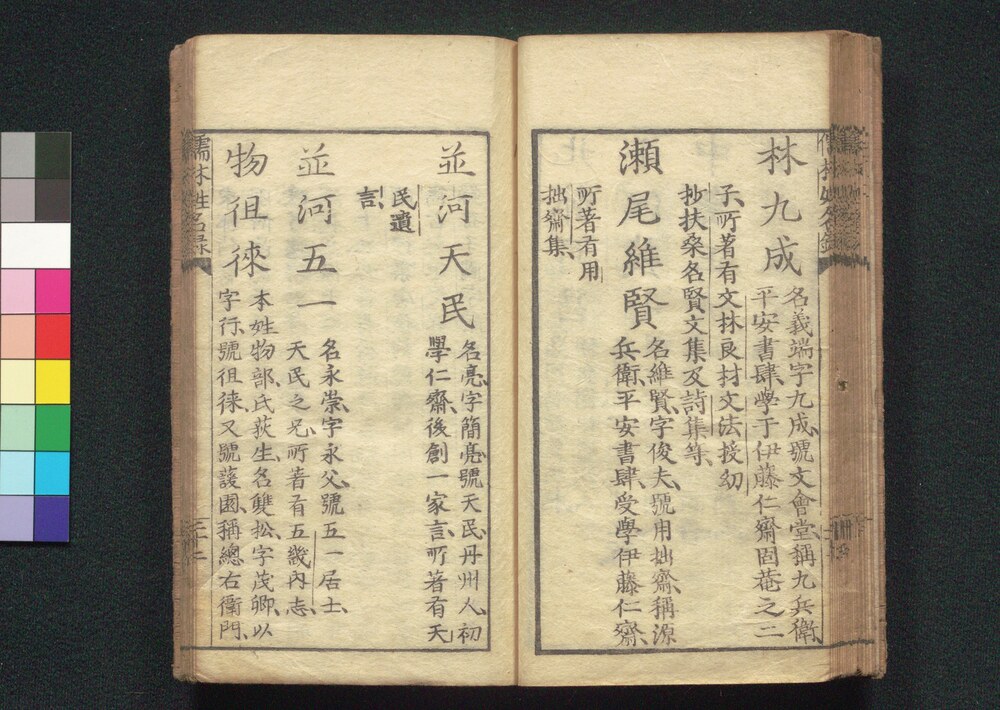 林九成
名義端字九成號文會堂稱九兵衛
平安書肆学于伊藤仁齋固菴之二
子所著有文林良材文法授幼
抄扶桑名賢文集及詩集等
瀬尾維賢
名維賢字俊夫號用拙齋稱源
兵衛平安書肆受學伊藤仁齋
所著有用
拙齋集
並河天民
名亮字簡亮號天民丹州人初
學仁齋後創一家言所著有天
民遺
言
並河五一
名永崇字永父號五一居士
天民之兄所著有五畿内志
物徂徠
本姓物部氏荻生名雙松字茂卿以
字行號徂徠又號蘐園稱總右衛門
儒林姓名録